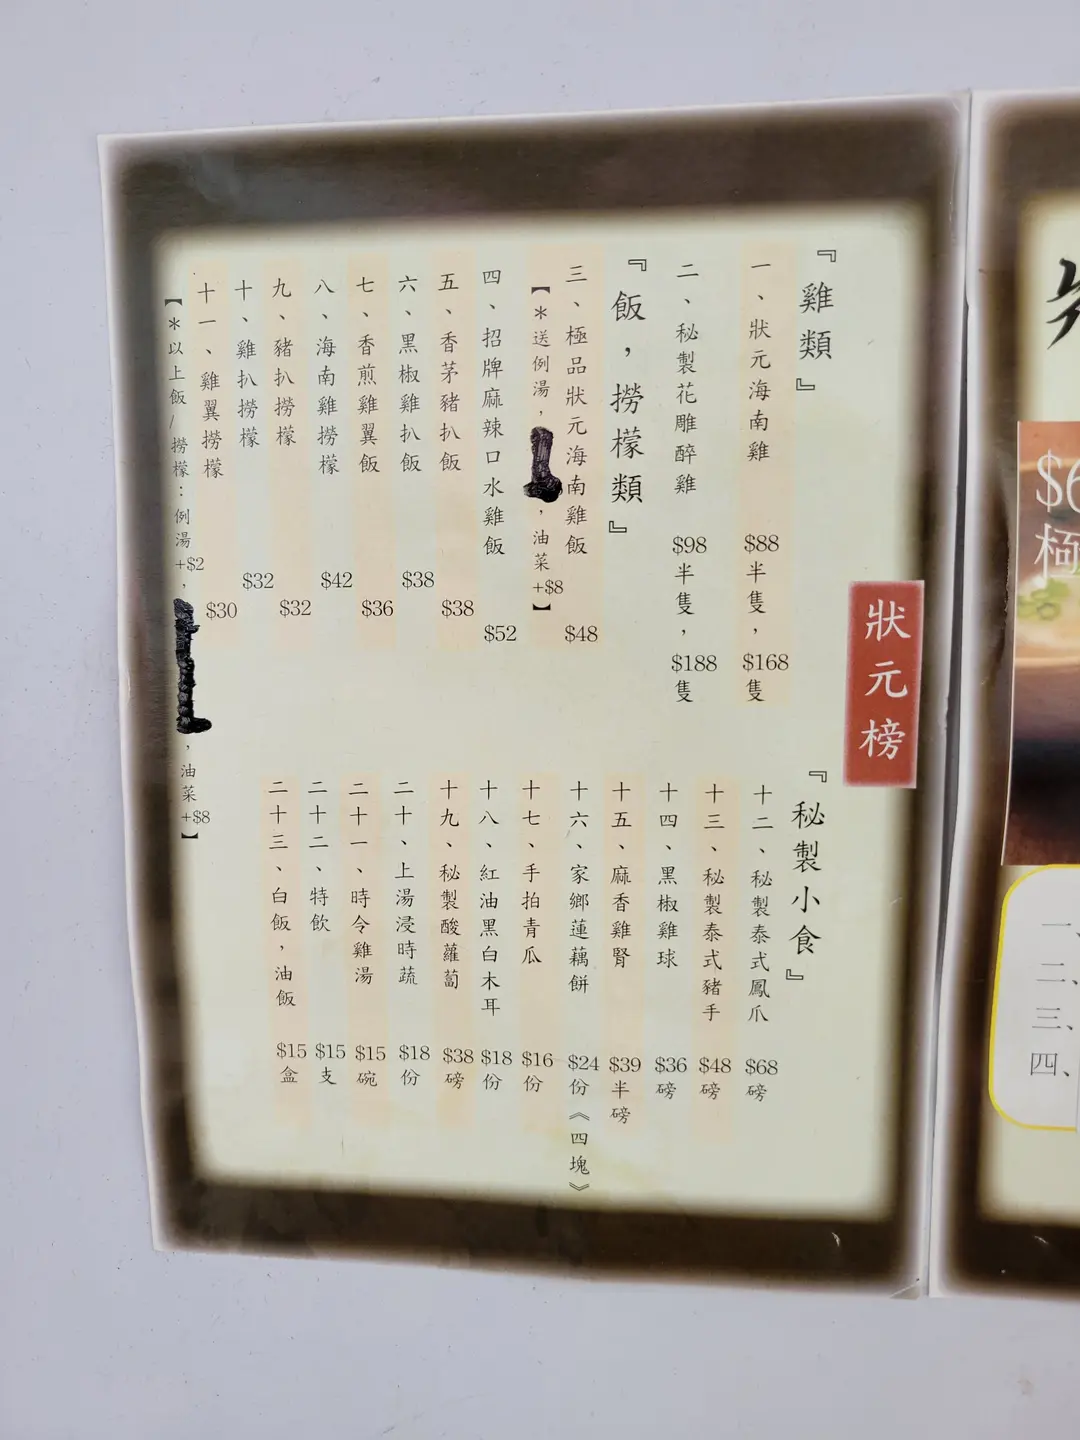 狀元榜
『雞類』
一、狀元海南雞 $88半隻，$168隻
二、秘製花雕醉雞 $98半隻，$188隻
『飯，撈檬類』
三、極品狀元海南雞飯 $48
【*送例湯，，油菜+$8】
四、招牌麻辣口水雞飯 $52
五、香茅豬扒飯 $38
六、黑椒雞扒飯 $38
七、香煎雞翼飯 $36
八、海南雞撈檬 $42
九、豬扒撈檬 $32
十、雞扒撈檬 $32
十一、雞翼撈檬 $30
【*以上飯/撈檬：例湯+$2，，油菜+$8】
『秘製小食』
十二、秘製泰式鳳爪 $68磅
十三、秘製泰式豬手 $48磅
十四、黑椒雞球 $36磅
十五、麻香雞腎 $39半磅
十六、家鄉蓮藕餅 $24份《四塊》
十七、手拍青瓜 $16份
十八、紅油黑白木耳 $18份
十九、秘製酸蘿蔔 $38磅
二十、上湯浸時蔬 $18份
二十一、時令雞湯 $15碗
二十二、特飲 $15支
二十三、白飯，油飯 $15盒
$6
極
一、
二、
三、
四、